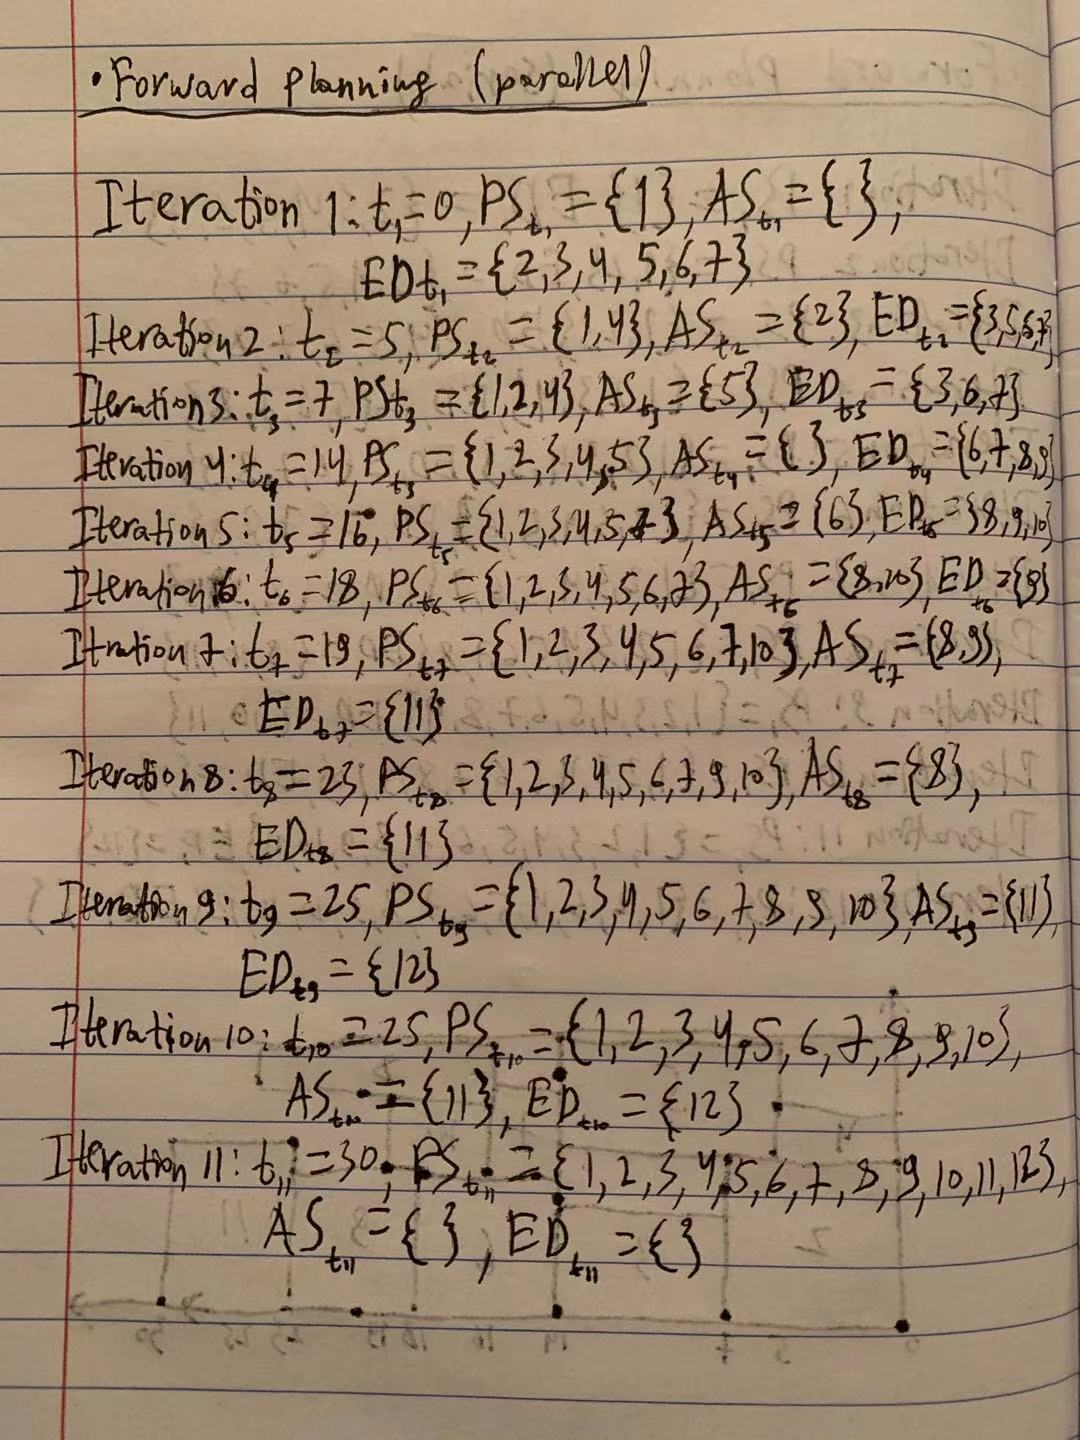 • Forward planning (parallel)
Iteration 1: t₁=0, PSt₁ = {1}, ASt₁ = { },
EDt₁ = {2,3,4,5,6,7}
Iteration 2: t₂ = 5, PSt₂ = {1,4}, ASt₂ = {2}, EDt₂ = {3,5,6,7}
Iteration 3: t₃ = 7, PSt₃ = {1,2,4}, ASt₃ = {5}, EDt₃ = {3,6,7}
Iteration 4: t₄ = 14, PSt₃ = {1,2,3,4,5}, ASt₄ = { }, EDt₄ = {6,7,8,9}
Iteration 5: t₅ = 16, PSt₅ = {1,2,3,4,5,7}, ASt₅ = {6}, EDt₅ = {8,9,10}
Iteration 6: t₆ = 18, PSt₆ = {1,2,3,4,5,6,7}, ASt₆ = {8,10}, EDt₆ = {9}
Itration 7: t₇ = 19, PSt₇ = {1,2,3,4,5,6,7,10}, ASt₇ = {8,9},
EDt₇ = {11}
Iteration 8: t₈ = 23, PSt₈ = {1,2,3,4,5,6,7,9,10}, ASt₈ = {8},
EDt₈ = {11}
Iteration 9: t₉ = 25, PSt₉ = {1,2,3,4,5,6,7,8,9,10}, ASt₉ = {11},
EDt₉ = {12}
Iteration 10: t₁₀ = 25, PSt₁₀ = {1,2,3,4,5,6,7,8,9,10},
ASt₁₀ = {11}, EDt₁₀ = {12}
Iteration 11: t₁₁ = 30, PSt₁₁ = {1,2,3,4,5,6,7,8,9,10,11,12},
ASt₁₁ = { }, EDt₁₁ = { }